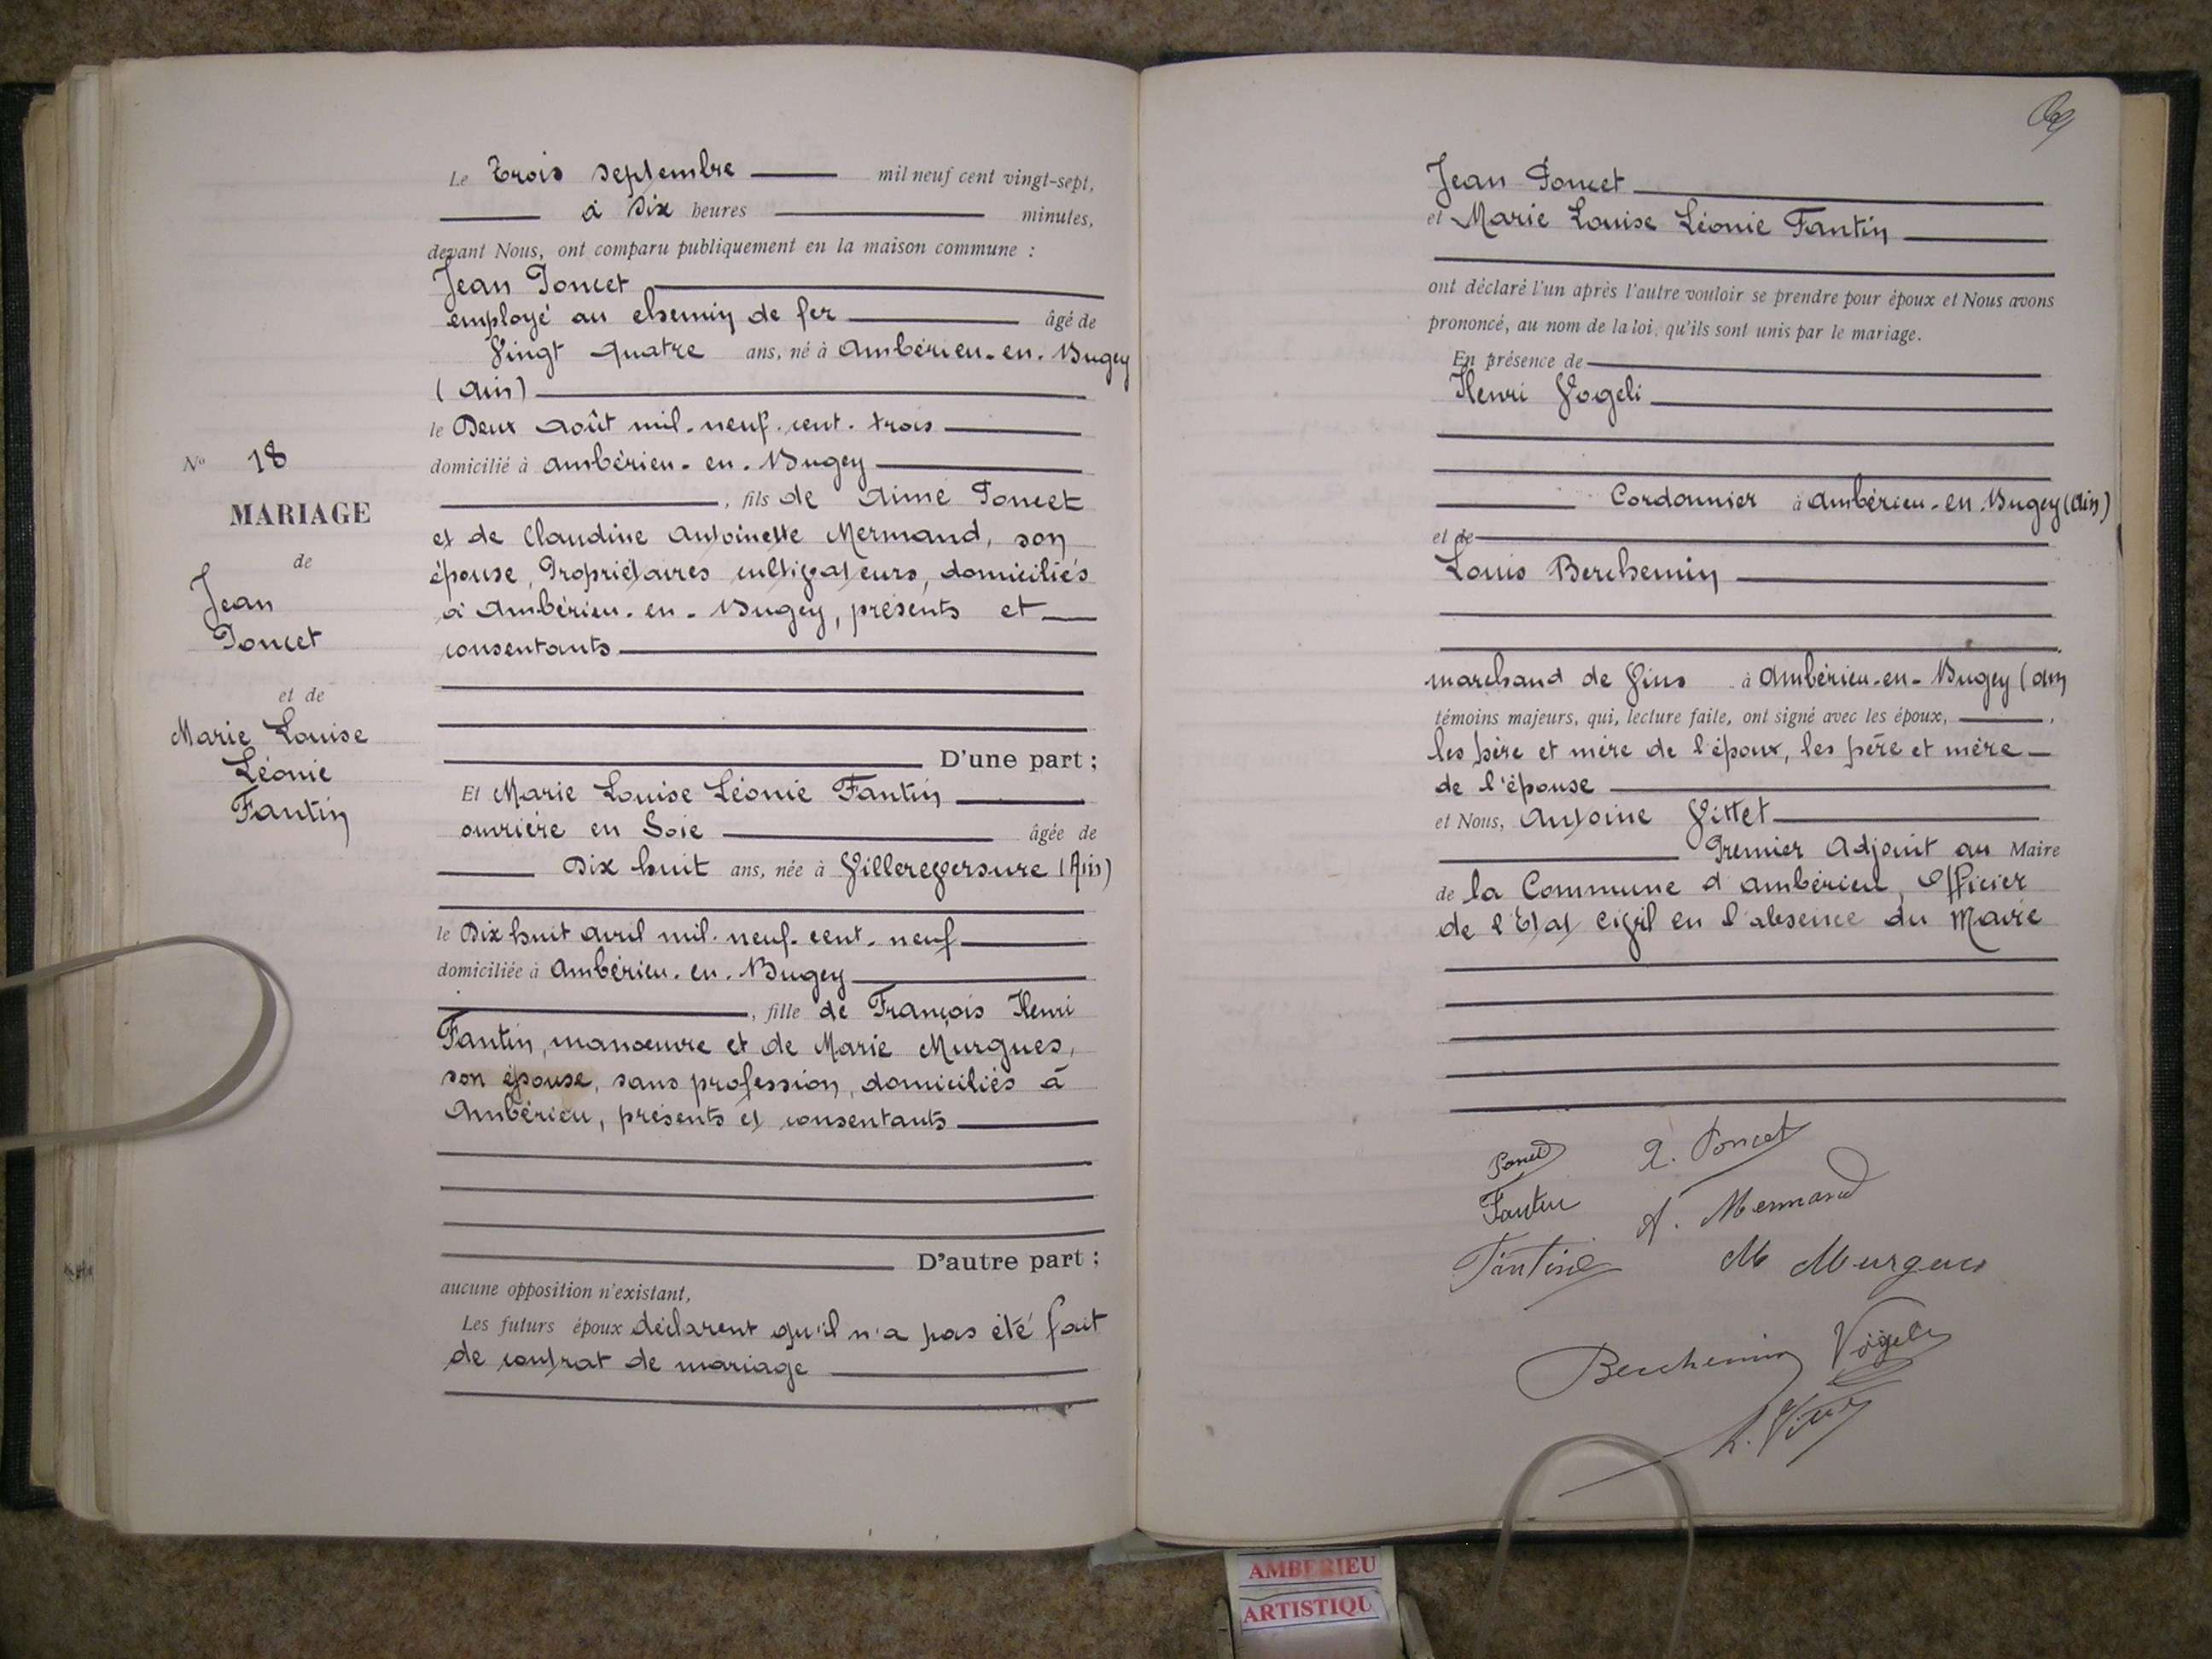 Le Trois Septembre mil neuf cent vingt-sept,
à Dix heures minutes,
devant Nous, ont comparu publiquement en la maison commune :
Jean Poncet
employé au chemin de fer âgé de
Vingt quatre ans, né à Ambérieu-en-Bugey
(Ain)
le Deux Août mil-neuf-cent-trois
domicilié à Ambérieu-en-Bugey
, fils de Aimé Poncet
et de Claudine Antoinette Mermand, son
épouse, Propriétaires cultivateurs, domiciliés
à Ambérieu-en-Bugey, présents et
consentants
D'une part ;
Et Marie Louise Léonie Fantin
ouvrière en Soie âgée de
Dix huit ans, née à Villereversure (Ain)
le Dix huit avril mil-neuf-cent-neuf
domiciliée à Ambérieu-en-Bugey
, fille de François Henri
Fantin, manœuvre et de Marie Murgues,
son épouse, sans profession, domiciliés à
Ambérieu, présents et consentants
D'autre part ;
aucune opposition n'existant,
Les futurs époux déclarent qu'il n'a pas été fait
de contrat de mariage
No 18
MARIAGE
de
Jean
Poncet
et de
Marie Louise
Léonie
Fantin
Jean Poncet
et Marie Louise Léonie Fantin
ont déclaré l'un après l'autre vouloir se prendre pour époux et Nous avons
prononcé, au nom de la loi, qu'ils sont unis par le mariage.
En présence de
Henri Vogeli
Cordonnier à Ambérieu-en-Bugey (Ain)
et de
Louis Berchemin
marchand de Vins à Ambérieu-en-Bugey (Ain
témoins majeurs, qui, lecture faite, ont signé avec les époux,
les père et mère de l'époux, les père et mère
de l'épouse
et Nous, Antoine Vittet
Premier Adjoint au Maire
de la Commune d'Ambérieu, Officier
de l'Etat Civil en l'absence du Maire
Poncet A. Poncet
Fantin A. Mermand
Fantin M Murgues
Berchemin Vögeli
A. Vittet
AMBERIEU
ARTISTIQU